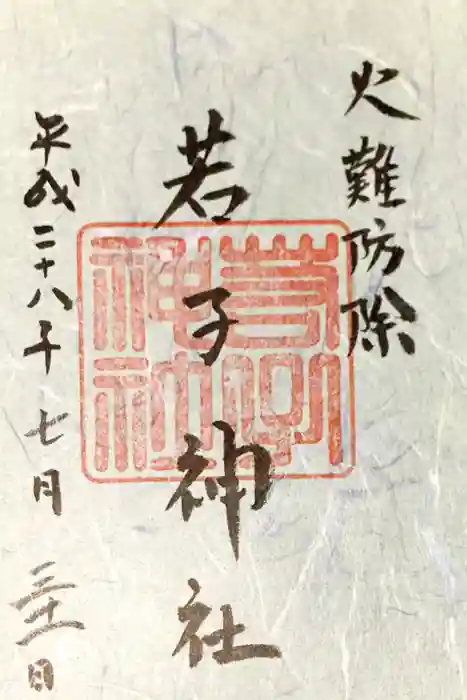 火難防除
若子神社
平成二十八年七月三十一日
若子
神社